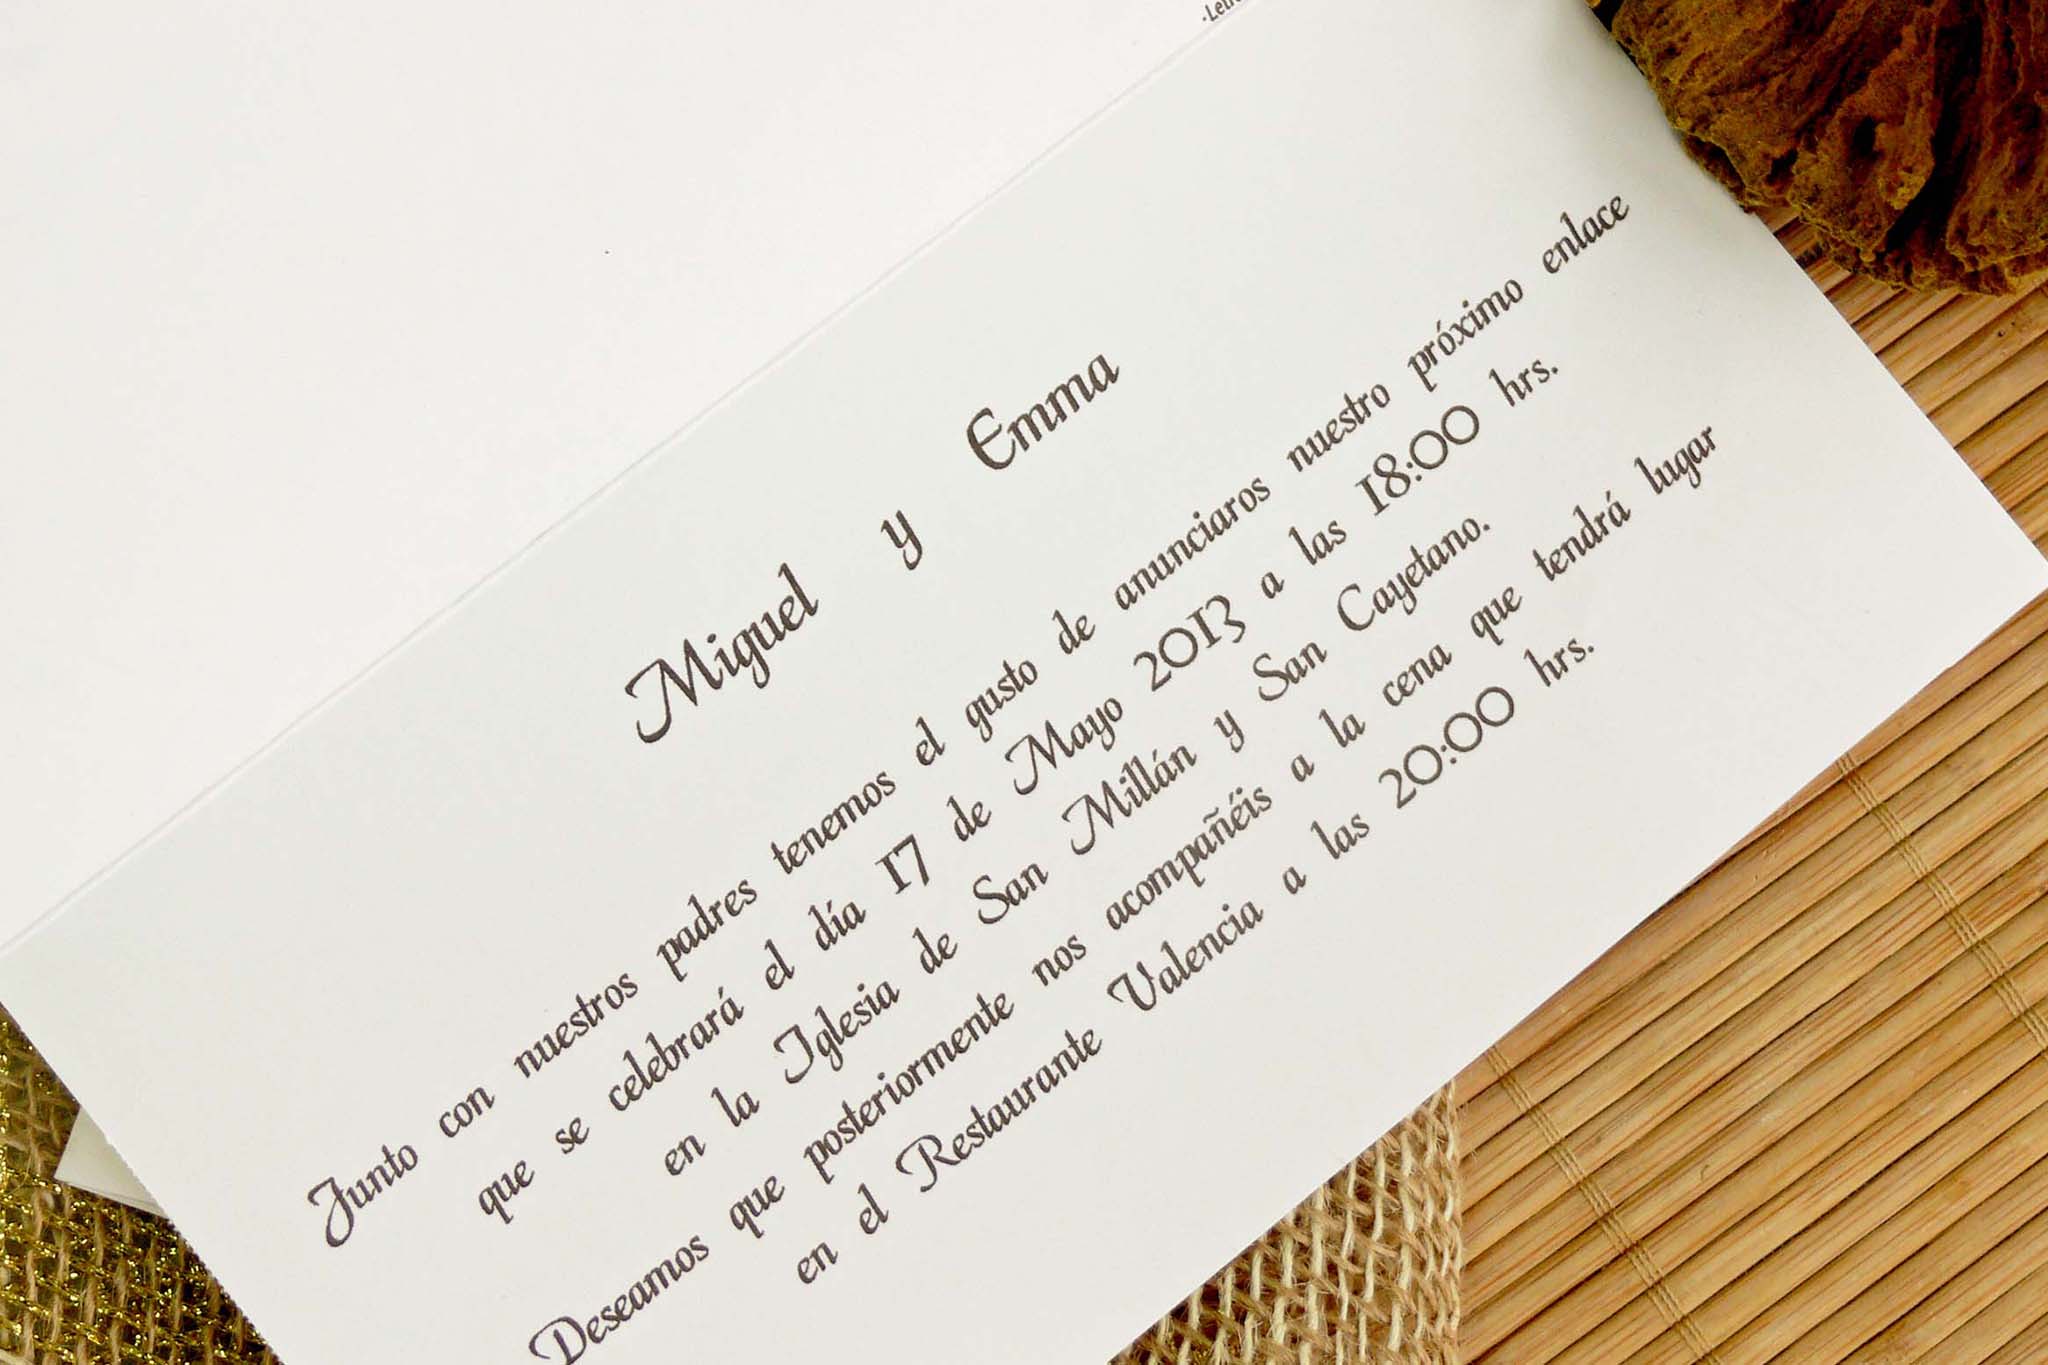 Miguel y Emma
Junto con nuestros padres tenemos el gusto de anunciaros nuestro próximo enlace
que se celebrará el día 17 de Mayo 2013 a las 18:00 hrs.
en la Iglesia de San Millán y San Cayetano.
Deseamos que posteriormente nos acompañéis a la cena que tendrá lugar
en el Restaurante Valencia a las 20:00 hrs.